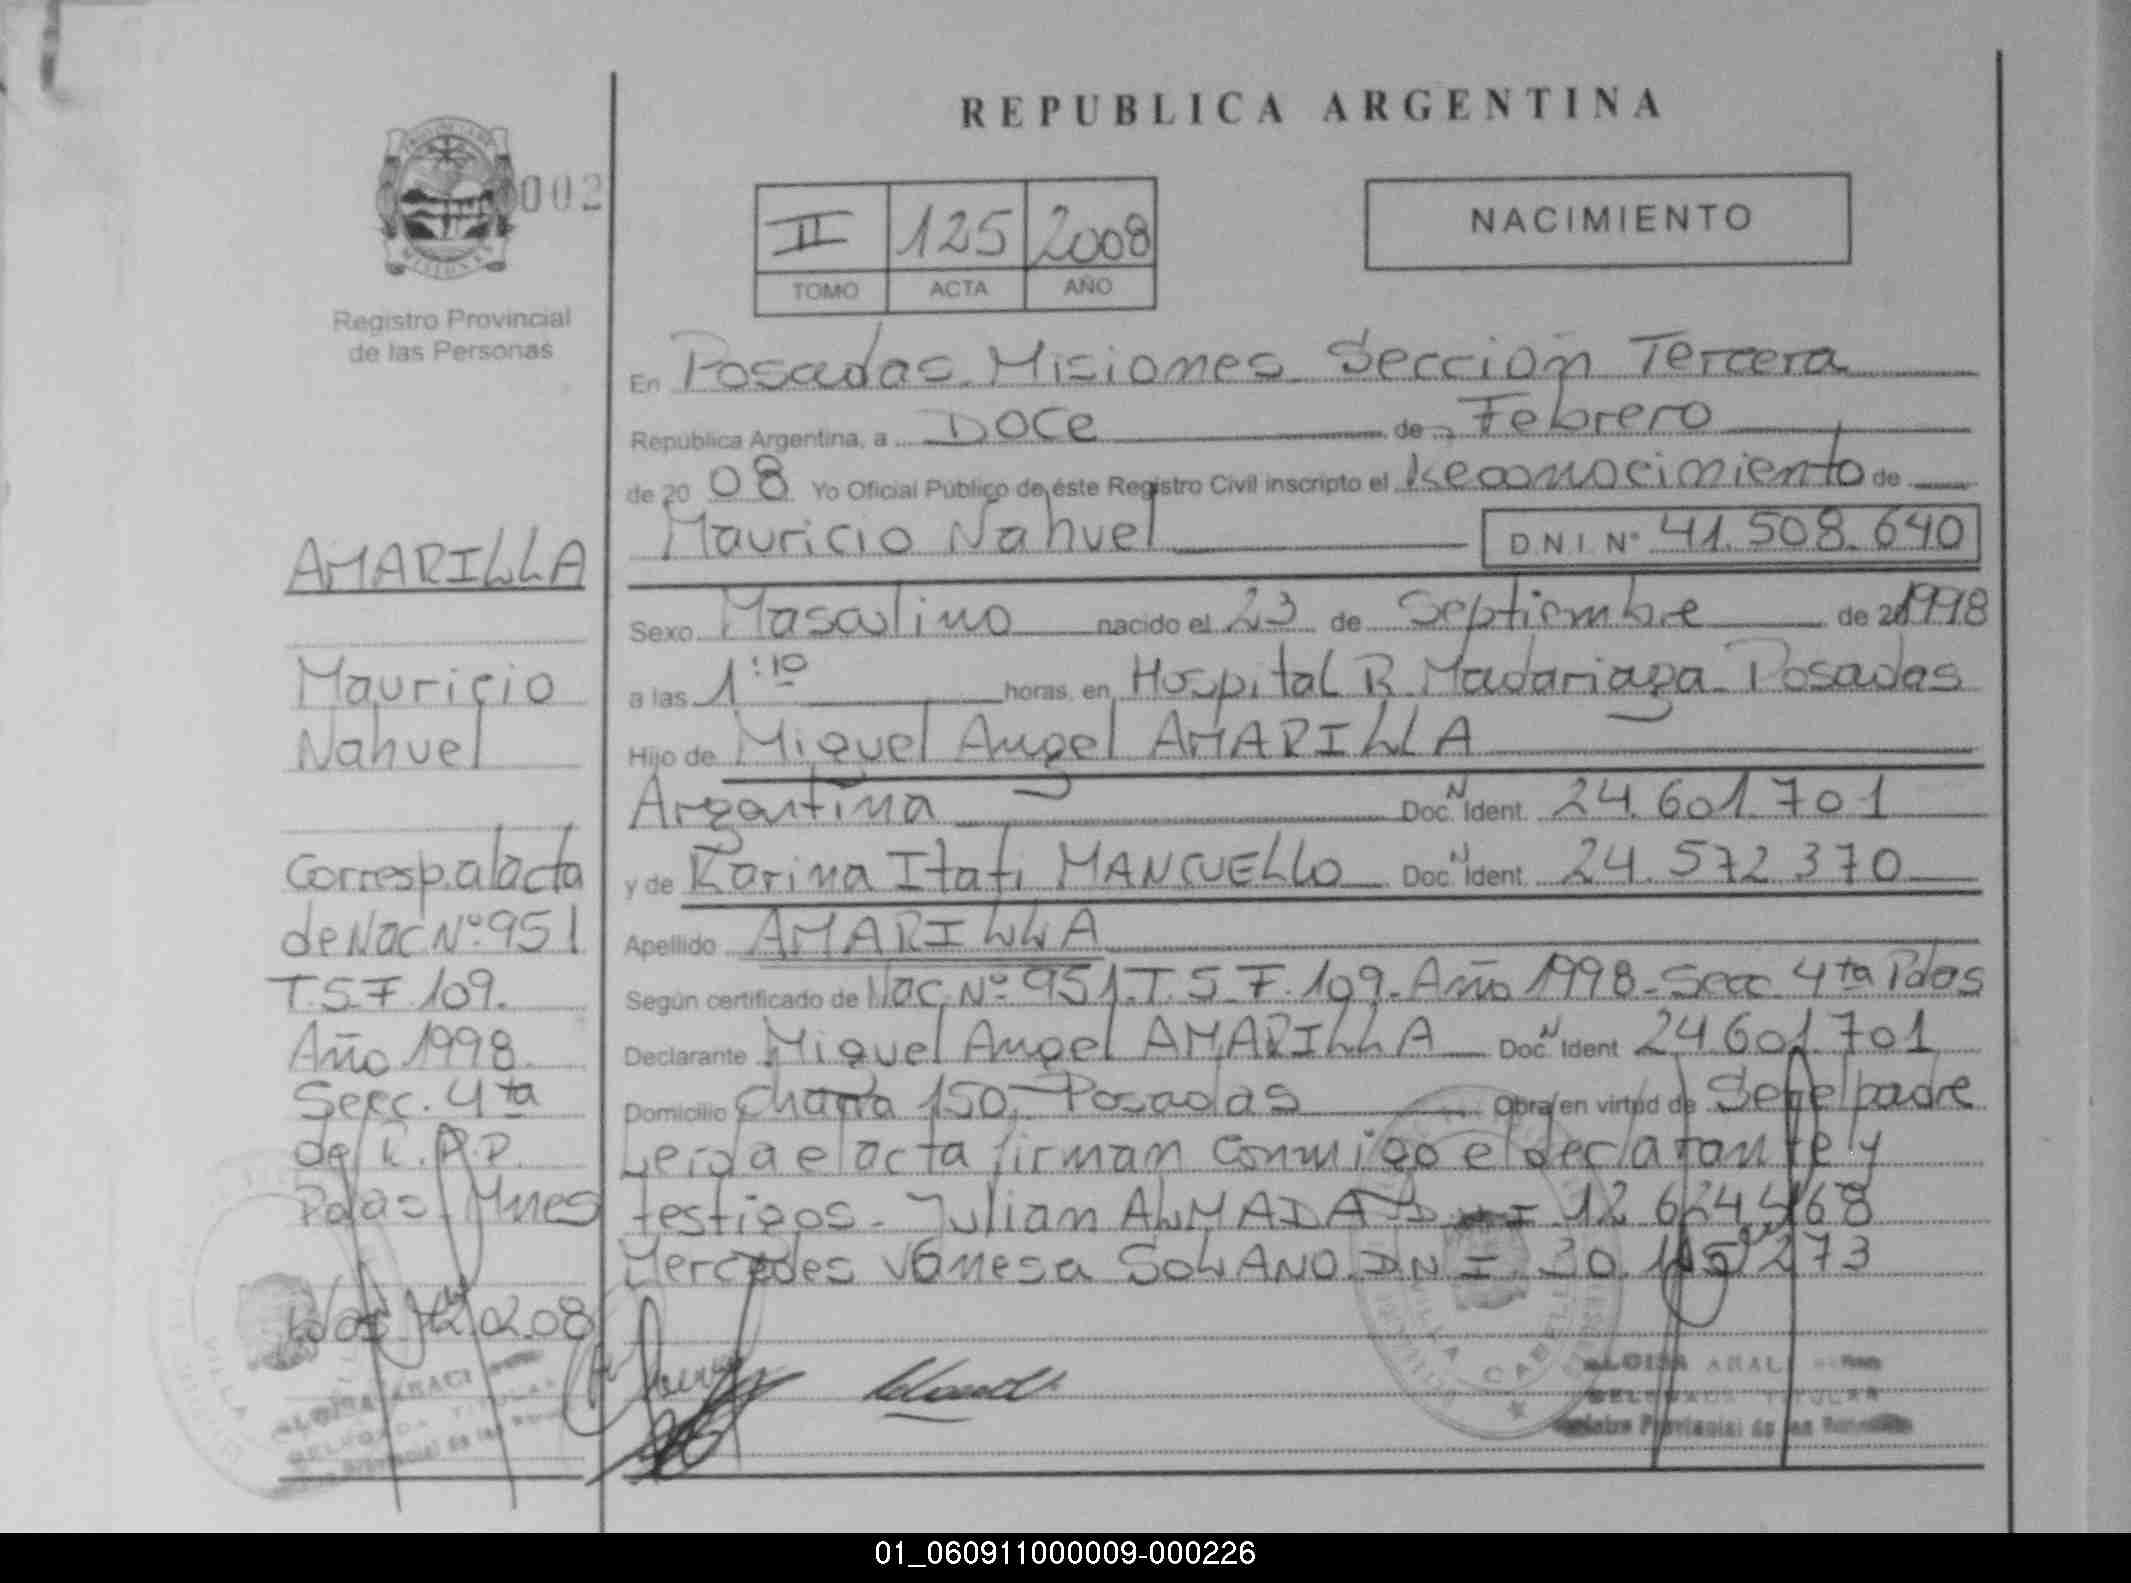 REPUBLICA ARGENTINA
002
II 125 2008
TOMO ACTA AÑO
NACIMIENTO
Registro Provincial
de las Personas
En Posadas Misiones Sección Tercera
República Argentina, a Doce de Febrero
de 20 08 Yo Oficial Público de éste Registro Civil inscripto el Reconocimiento de
Mauricio Nahuel D N I Nº 41.508.640
Sexo Masculino nacido el 23 de Septiembre de 1998
a las 1:10 horas, en Hospital R. Madariaga Posadas
Hijo de Miguel Angel AMARILLA
Argentina Doc. N Ident. 24.601.701
y de Karina Itati MANCUELLO Doc. N Ident. 24.572.370
Apellido AMARILLA
Según certificado de Nac. Nº 951.T.S.F.109.Año 1998-Secc. 4ta Pdas
Declarante Miguel Angel AMARILLA Doc. N Ident 24.601.701
Domicilio Chacra 150, Posadas Obra en virtud de Ser el padre
Leida el acta firman conmigo el declarante y
testigos - Julian ALMADA D I 12 624 468
Mercedes Vanesa SOLANO DNI 30. 273
AMARILLA
Mauricio
Nahuel
Corresp. al acta
de Nac Nº.951
T.S.F.109.
Año 1998.
Secc. 4ta
del R.P.P.
Pdas Mnes
Pdas 12 02.08
DELEGADA TITULAR
Registro Provincial de las Personas
DELEGADA TITULAR
Provincial de las
01_060911000009-000226